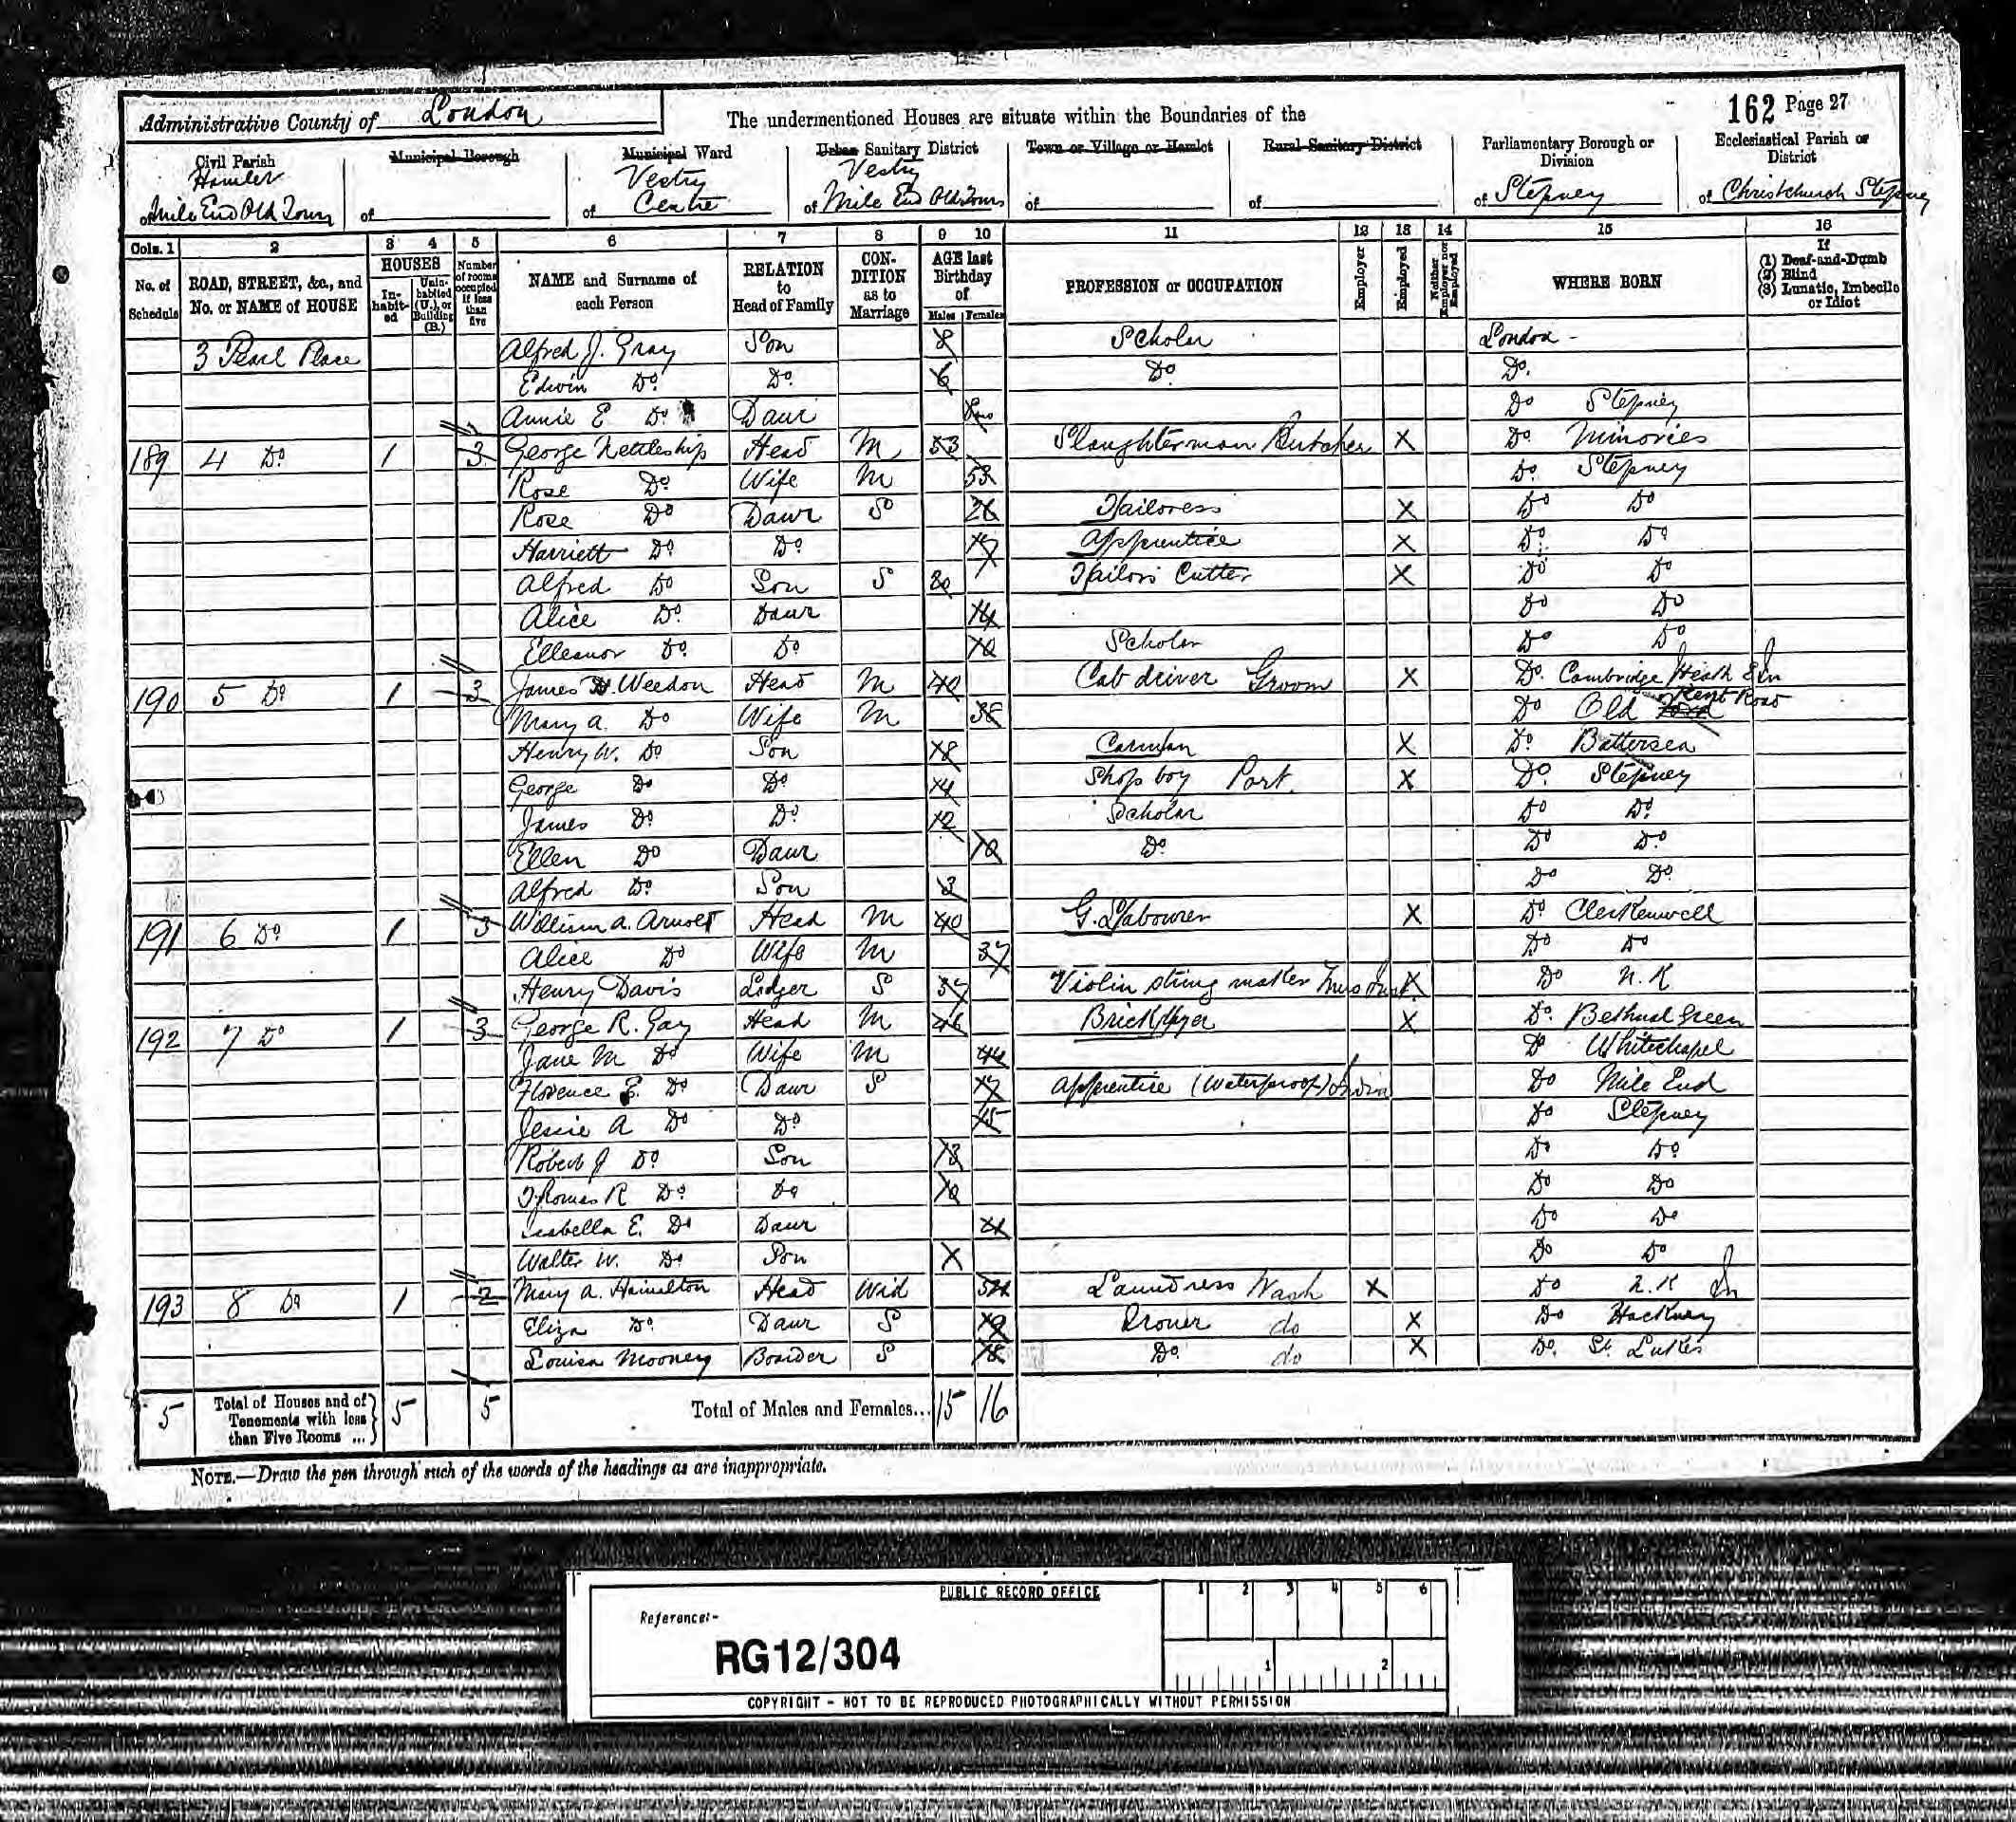 Administrative County of London
The undermentioned Houses are situate within the Boundaries of the
162 Page 27
Civil Parish
Hamlet
of Mile End Old Town
Municipal Borough
of
Municipal Ward
Vestry
of Centre
Urban Sanitary District
Vestry
of Mile End Old Town
Town or Village or Hamlet
of
Rural Sanitary District
of
Parliamentary Borough or Division
of Stepney
Ecclesiastical Parish or District
of Christchurch Stepney
Cols. 1 2 3 4 5 6 7 8 9 10 11 12 13 14 15 16
No. of Schedule
ROAD, STREET, &c., and No. or NAME of HOUSE
HOUSES
In-habit-ed
Unin-habited (U.), or Building (B.)
Number of rooms occupied if less than five
NAME and Surname of each Person
RELATION to Head of Family
CON-DITION as to Marriage
AGE last Birthday of
Males Females
PROFESSION or OCCUPATION
Employer
Employed
Neither Employer nor Employed
WHERE BORN
If
(1) Deaf-and-Dumb
(2) Blind
(3) Lunatic, Imbecile or Idiot
3 Pearl Place Alfred J. Gray Son 8 Scholar London -
Edwin Do. Do. 6 Do. Do.
Annie E Do. Daur Do Stepney
189 4 Do. 1 3 George Nettleship Head M 53 Slaughterman Butcher X Do. Minories
Rose Do Wife M 53 Do. Stepney
Rose Do Daur S 26 Tailoress X Do Do
Harriett Do Do. 17 Apprentice X Do. Do
Alfred Do Son S 20 Tailors Cutter X Do Do
Alice Do. Daur 14 Do Do
Elleanor Do. Do 10 Scholar Do Do
190 5 Do 1 3 James Weedon Head M 40 Cab driver Groom X Do. Cambridge Heath
Mary A. Do Wife M 38 Do Old Kent Road
Henry W. Do Son 18 Carman X Do. Battersea
George Do Do. 14 Shop boy Port. X Do. Stepney
James Do. Do. 12 Scholar Do Do.
Ellen Do Daur 10 Do. Do Do.
Alfred Do. Son 3 Do Do.
191 6 Do. 1 3 William A. Arnold Head M 40 G. Labourer X Do. Clerkenwell
Alice Do Wife M 37 Do Do
Henry Davis Lodger S 37 Violin string maker X Do N. K
192 7 Do 1 3 George R. Gay Head M 46 Bricklayer X Do. Bethnal Green
Jane M Do Wife M 44 Do Whitechapel
Florence E. Do Daur S 17 Apprentice (Waterproof) Do Mile End
Jessie A Do Do 15 Do Stepney
Robert J Do. Son 13 Do Do.
Thomas R Do. Do 10 Do Do
Isabella E. Do Daur 4 Do Do
Walter W. Do. Son Do Do
193 8 Do 1 2 Mary A. Hamilton Head Wid Laundress Wash X Do N. K
Eliza Do. Daur S 19 Ironer do X Do Hackney
Louisa Mooney Boarder S 18 Do. do X Do. St. Lukes
5 Total of Houses and of Tenements with less than Five Rooms ... 5 5 Total of Males and Females... 15 16
NOTE.—Draw the pen through such of the words of the headings as are inappropriate.
PUBLIC RECORD OFFICE
1 2 3 4 5 6
Reference:-
RG12/304
1 2
COPYRIGHT - NOT TO BE REPRODUCED PHOTOGRAPHICALLY WITHOUT PERMISSION